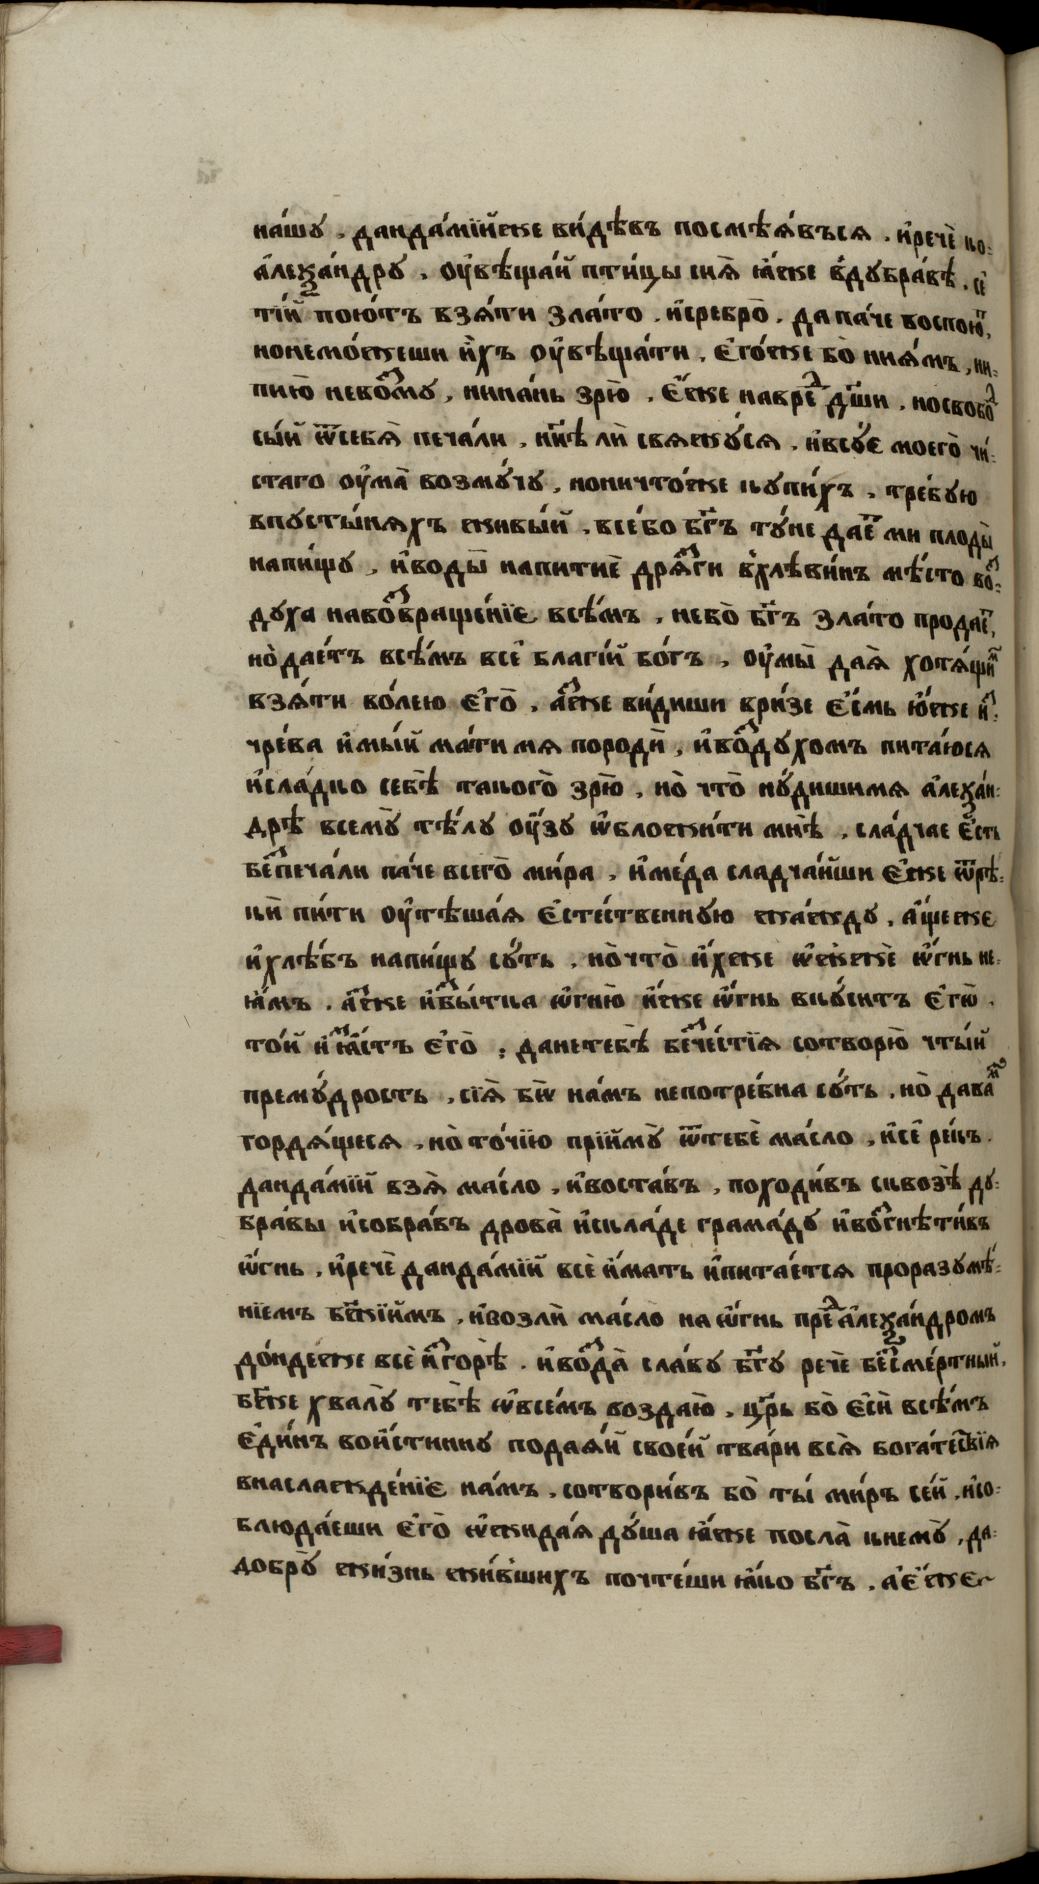 на́шꙋ . данда́мїй же ви́дѣвъ посмѣѧ́въсѧ . и҆речѐ ко-
а҆леѯа́ндрꙋ , оу҆вѣща́й пти́цы сиѧ̀ ꙗ҆́же в̾дꙋбра́вѣ . се҆
ті́и пою́тъ взѧ́ти зла́то . и҆сребро̀ . да па́че воспою́ⷮ,
нонемо́жеши и҆́хъ оу҆вѣща́ти , є҆го́же бо̀ ниѧ́мъ , ни-
пию̀ невоⷥмꙋ , ника́нь зрю̀ . є҆́же навреⷣ дш҃и , носвобоⷣ
сы́й ѿсебѧ̀ печа́ли , нн҃ѣ ли̑ свѧжꙋ́сѧ , и҆всꙋ́е моего̀ чи́-
стаго оу҆ма̀ возмꙋ́чꙋ , поничто́же кꙋпи́хъ , тре́бꙋю
впꙋсты́нѧхъ живы́й , все́бо бг҃ъ тꙋ́не дае́ⷮ ми плоды̀
напи́щꙋ , и҆воды̀ напитиѐ дрѧ́ⷥги в̾хлѣви́нъ мѣ́сто во́ⷥ-
дꙋха навоⷥвраще́нїе всѣ́мъ , небо̀ бг҃ъ зла́то продае́ⷮ,
но̀дае́тъ всѣ́мъ все҆ благі́й бо́гъ , оу҆мы̀ даѧ̀ хотѧ́щиⷨ
взѧ́ти во́лею є҆го̀ , а҆́ⷥже ви́диши в ри́зе є҆́смь ю҆́же и҆ⷥ-
чре́ва и҆мы́й ма́ти мѧ породѝ , и҆воⷥдꙋхомъ пита́юсѧ
и҆сла́дко себѣ̀ такого̀ зрю̀ , но̀ что̀ нꙋ́дишимѧ а҆леѯа́н-
дрѣ всемꙋ̀ тѣ́лꙋ оу҆́зꙋ ѡ҆бложи́ти мнѣ̀ , сла́дчае є҆́сть
беⷥпеча́ли па́че всего̀ ми́ра , и҆ме́да сладча́йши є҆́же ѿрѣ-
ки̑ пи́ти оу҆тѣша́ѧ є҆сте́ственнꙋю жа́ждꙋ , а҆́щеже
и҆хлѣ́бъ напи́щꙋ сꙋ́ть , но̀что̀ и҆́хже ѡ҆жжѐ ѡ҆́гнь не-
ꙗ҆́мъ . а҆́ⷥже и҆ⷥбы́тка ѡ҆гню̀ и҆́же ѡ҆́гнь вкꙋ́ситъ є҆гѡ̀ .
то́й и҆ⷥꙗ҆́стъ є҆го̀ ; данетебѣ̀ беⷥче́стїѧ сотворю̀ чты́й
премꙋ́дрость , сїѧ̀ бѡ̀ на́мъ непотре́бна сꙋ́ть , но̀ даваⷨ
гордѧ́щесѧ , но̀ то́чїю прїймꙋ̀ ѿтебѐ ма́сло , и҆се҆ ре́къ .
данда́мїй взѧ̀ ма́сло , и҆воста́въ , походи́въ сквозѣ̀ дꙋ-
бра́вы и҆собра́въ дрова̀ и҆скла́де грама́дꙋ и҆воⷥгнѣти́въ
ѡ҆́гнь , и҆речѐ данда́мїй всѐ и҆́мать и҆пита́етсѧ проразꙋмѣ́-
нїемъ бж҃їймъ , и҆возли̑ ма́сло на ѡ҆́гнь преⷣ а҆леѯа́ндромъ
до́ндеже всѐ и҆ⷥгорѣ̀ . и҆воⷥда̀ сла́вꙋ бг҃ꙋ речѐ беⷥсме́ртный ,
бж҃е хвалꙋ̀ тебѣ̀ ѡ҆все́мъ воздаю̀ , цр҃ь бо̀ є҆сѝ всѣ́мъ
є҆ди́нъ вои́стиннꙋ подаѧ́й свое́й тва́ри всѧ̀ бога́тескїѧ
внаслажде́нїе на́мъ , сотвори́въ бо̀ ты́ ми́ръ се́й , и҆со-
блюда́еши є҆го̀ ѡ҆жида́ѧ дꙋ́ша ꙗ҆́же посла̀ кнемꙋ̀ , да-
добрꙋ̀ жи́знь жи́вшихъ почте́ши ꙗ҆́ко бг҃ъ . а҆є҆́же